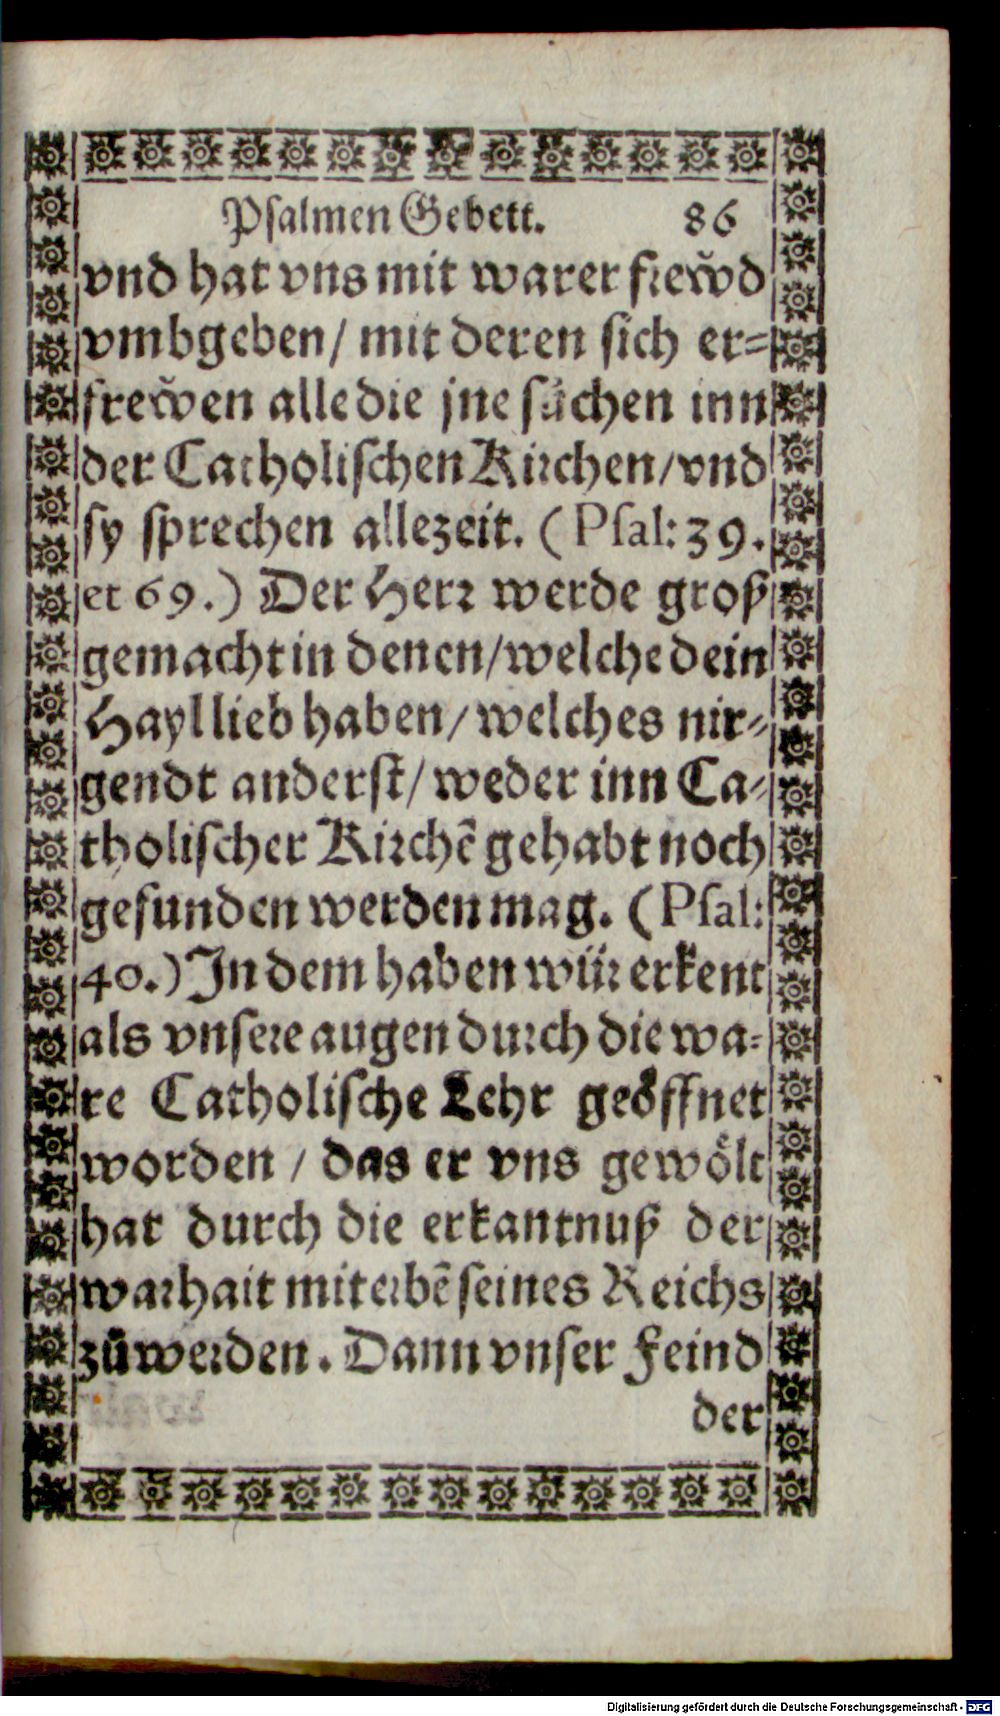 Psalmen Gebett. 86
vnd hat vns mit warer frew̌d
vmbgeben/ mit deren sich er=
frew̌en alle die jne sůchen inn
der Catholischen Kirchen/vnd
sy sprechen allezeit. (Psal: 39.
et 69.) Der Herr werde groß
gemacht in denen/welche dein
Hayl lieb haben/ welches nir=
gendt anderst/ weder inn Ca=
tholischer Kirchē gehabt noch
gefunden werden mag. (Psal:
40.) In dem haben wür erkent
als vnsere augen durch die wa=
re Catholische Lehr geöffnet
worden / das er vns gewölt
hat durch die erkantnuß der
warhait miterbē seines Reichs
zůwerden. Dann vnser Feind
der
Digitalisierung gefördert durch die Deutsche Forschungsgemeinschaft - DFG